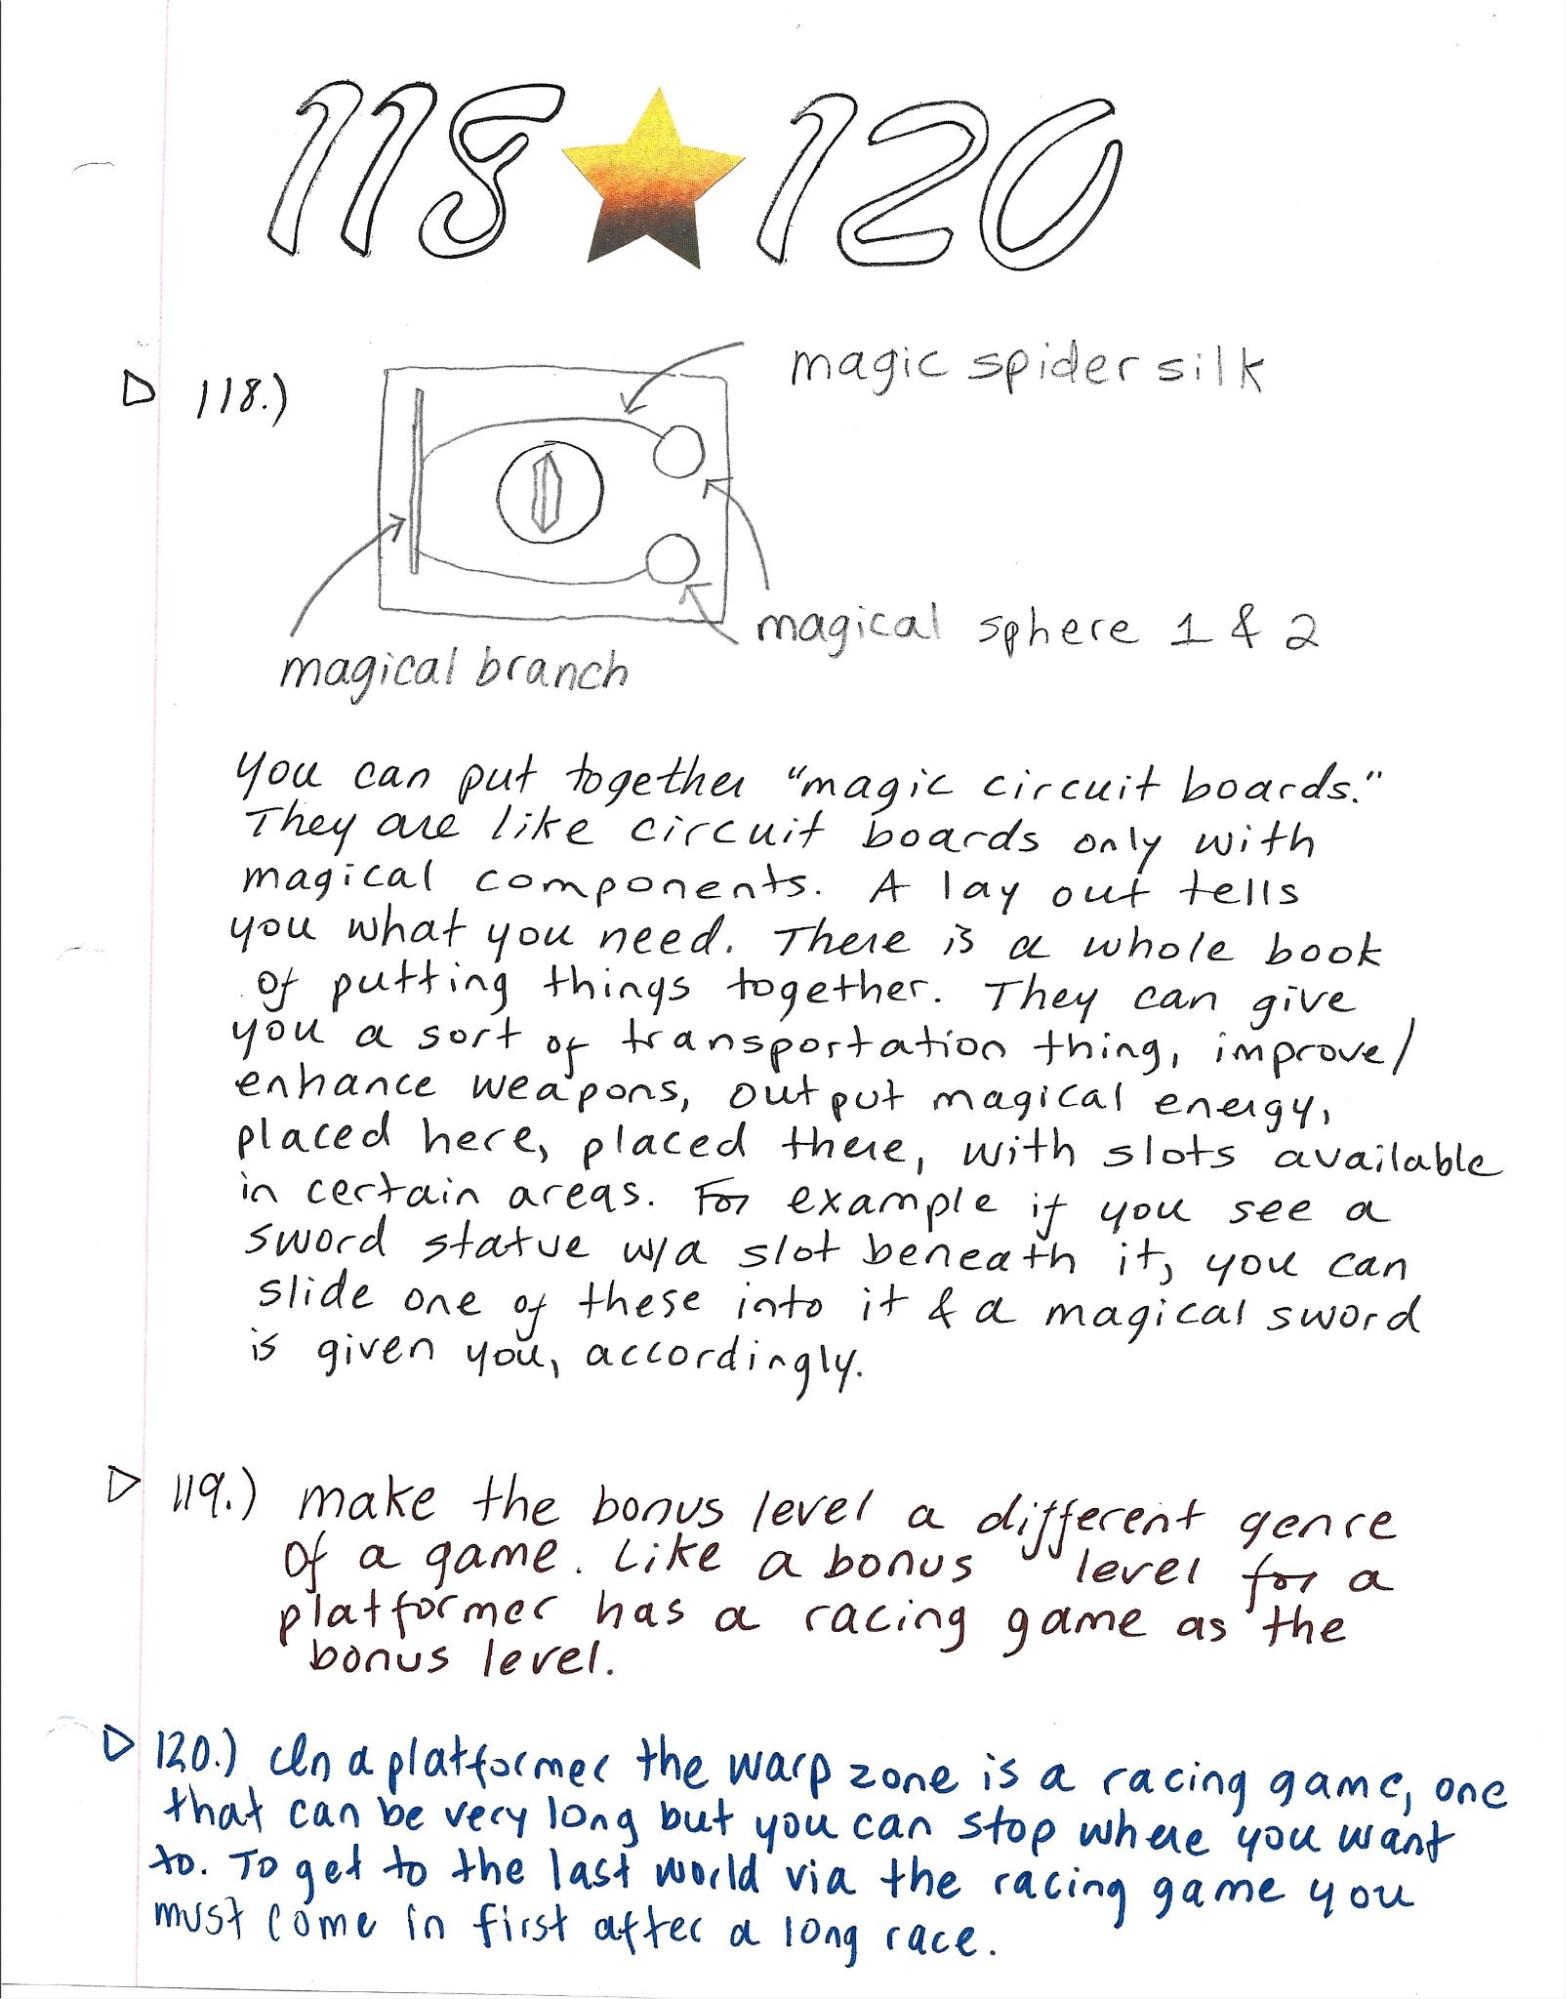 118 120
magic spider silk
118.)
magical sphere 1 & 2
magical branch
You can put together "magic circuit boards."
They are like circuit boards only with
magical components. A lay out tells
you what you need. There is a whole book
of putting things together. They can give
you a sort of transportation thing, improve/
enhance weapons, output magical energy,
placed here, placed there, with slots available
in certain areas. For example if you see a
sword statue w/a slot beneath it, you can
slide one of these into it & a magical sword
is given you, accordingly.
119.) make the bonus level a different genre
of a game. Like a bonus level for a
platformer has a racing game as the
bonus level.
120.) In a platformer the warp zone is a racing game, one
that can be very long but you can stop where you want
to. To get to the last world via the racing game you
must come in first after a long race.